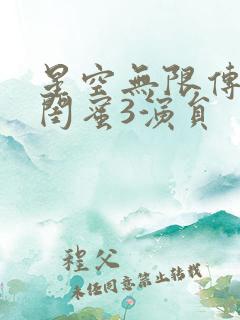 星空無限傳
閨蜜3-演員
程父
未任同意禁止转载